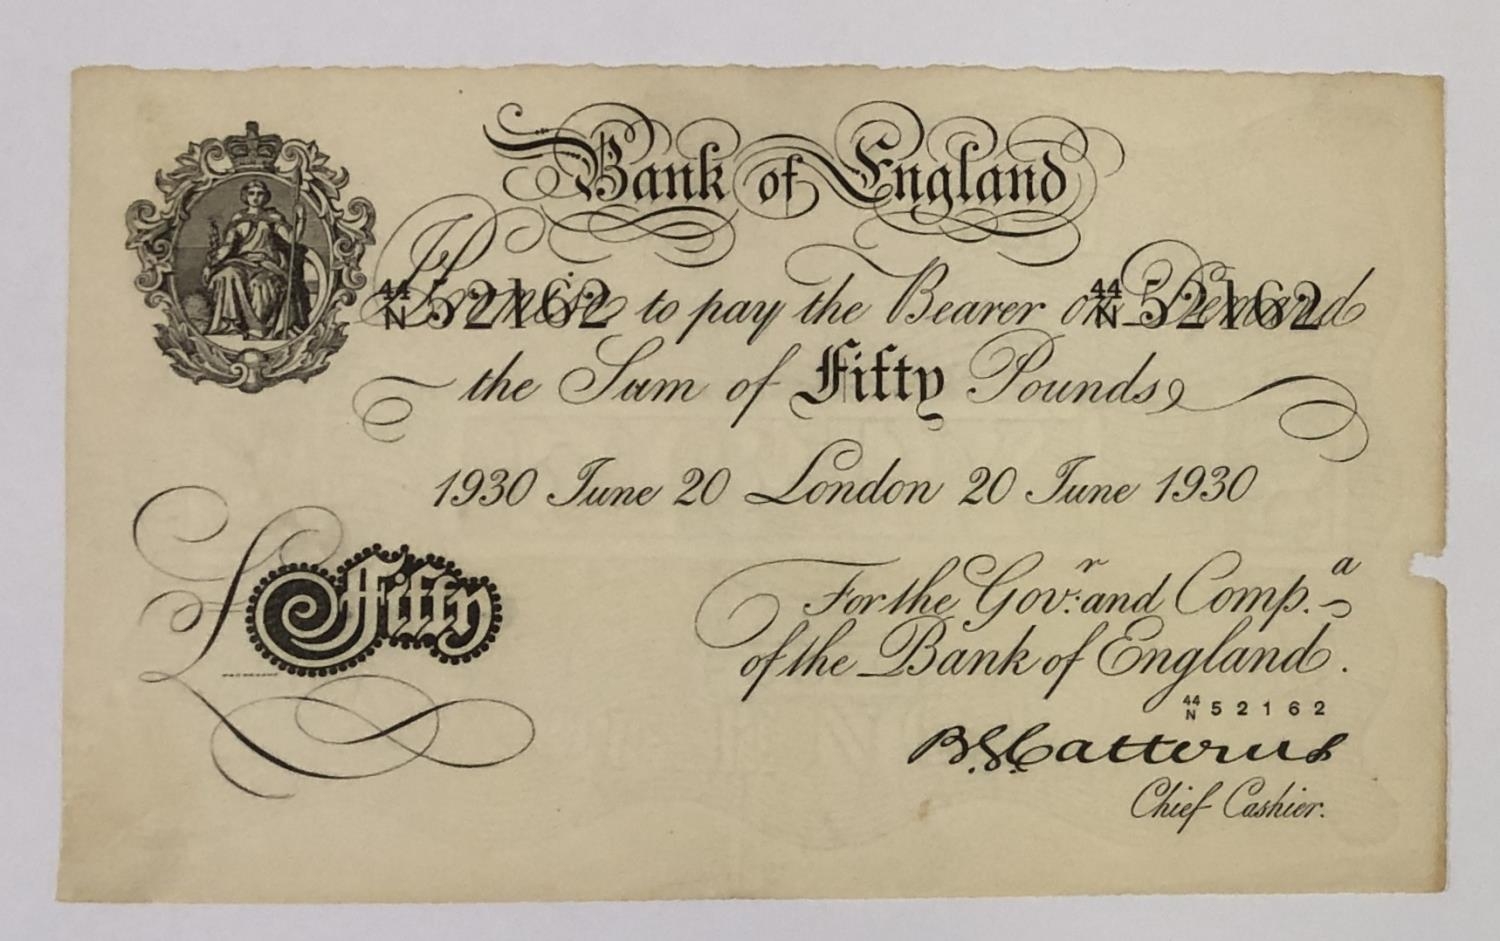 Bank of England
I Promise to pay the Bearer on Demand
44 N 52162 44 N 52162
the Sum of Fifty Pounds
1930 June 20 London 20 June 1930
£ Fifty
For the Gov.r and Comp.a
of the Bank of England.
44 N 52162
B.G. Catterns
Chief Cashier.